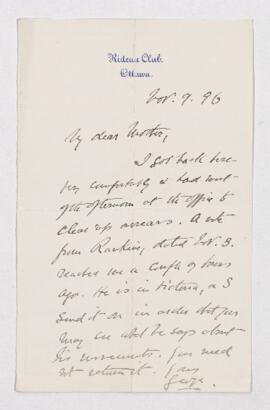 Rideau Club.
Ottawa.
Nov. 9. 96
My dear Mother,
I got back here
very comfortably & had most
of the afternoon at the office to
clear up arrears. A note
from Rankine, dated Nov. 3.
reaches me a couple of hours
ago. He is in Victoria, & I
send it on in order that you
may see what he says about
his movements. You need
not return it. Yours
George